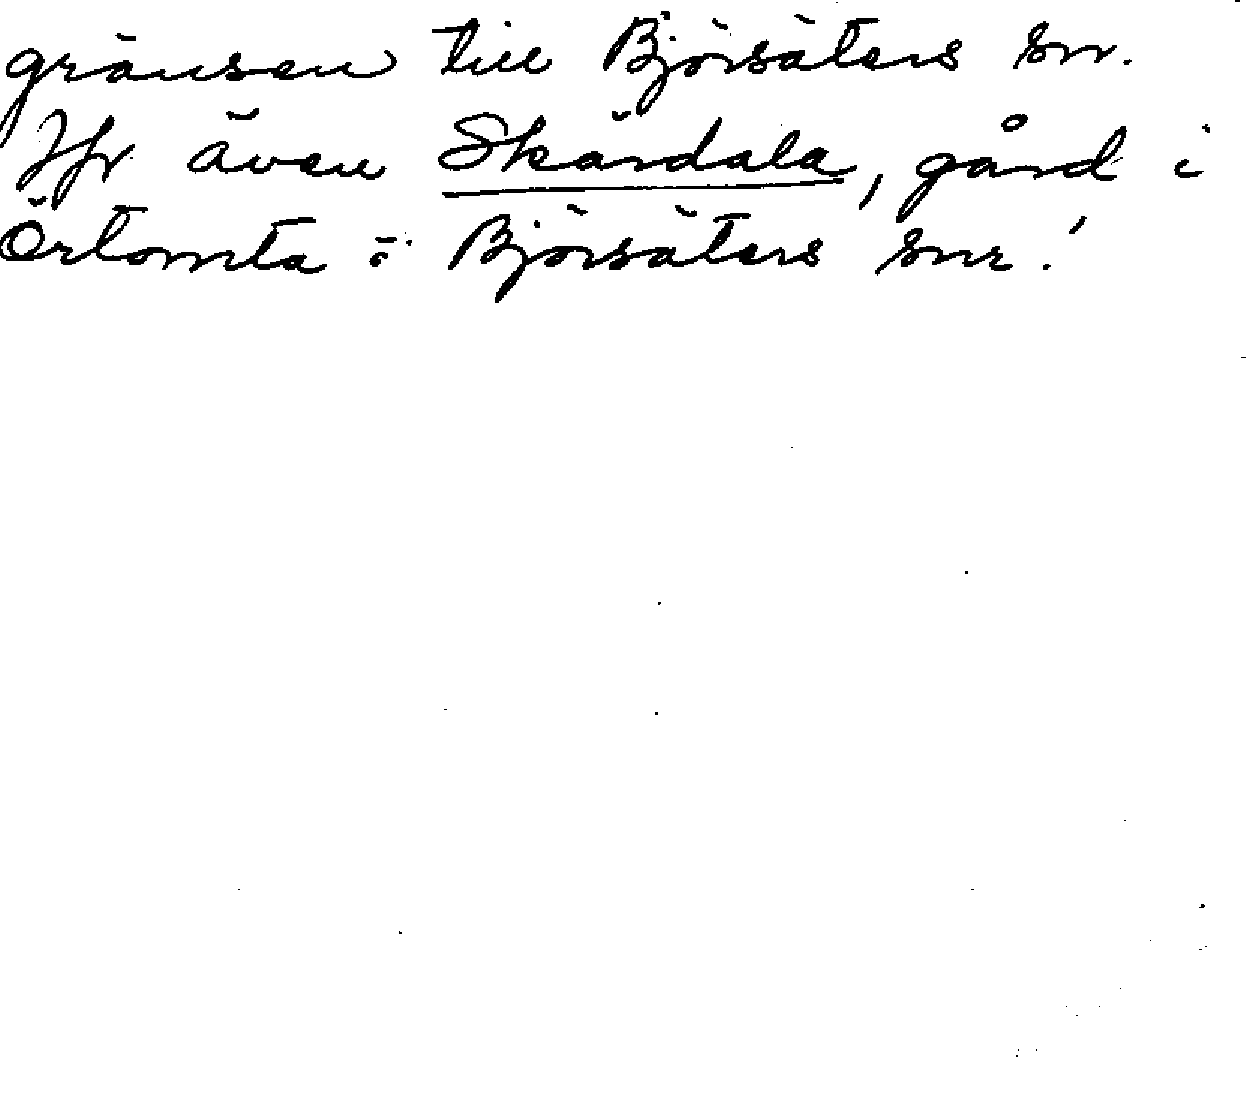 gränsen till Björsäters sn.
Jfr även Skärdala, gård i
Örtomta o. Björsäters snr!